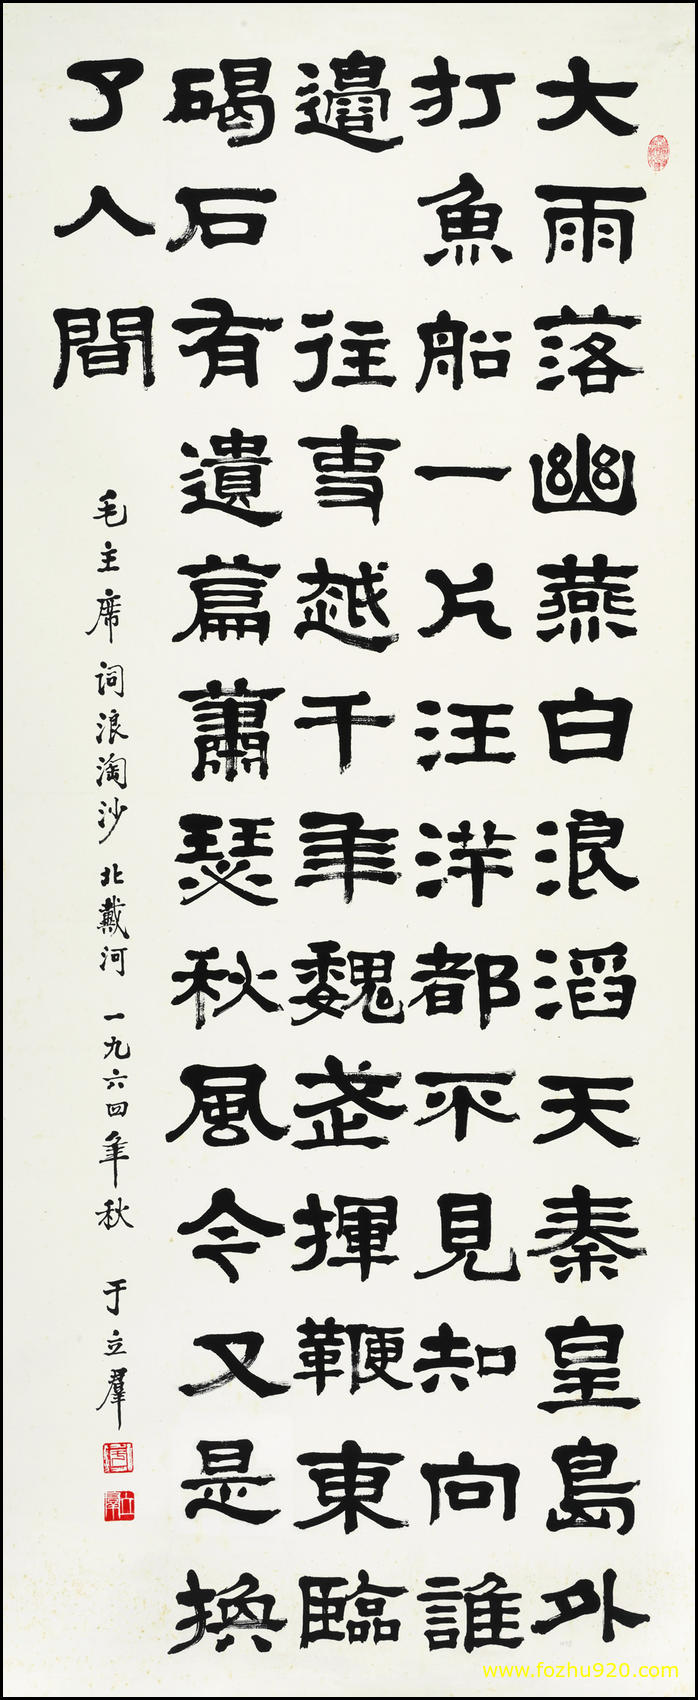 大雨落幽燕白浪滔天秦皇島外
打魚船一片汪洋都不見知向誰
邊 往事越千年魏武揮鞭東臨
碣石有遺篇蕭瑟秋風今又是換
了人間
毛主席詞浪淘沙 北戴河 一九六四年秋 于立羣
www.fozhu920.com